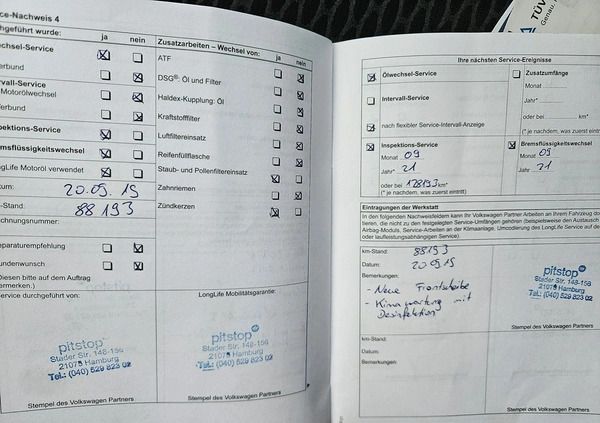 ce-Nachweis 4
chgeführt wurde:
ja
nein
chsel-Service
erbund
rvall-Service
Motorölwechsel
erbund
pektions-Service
msflüssigkeitswechsel
ngLife Motoröl verwendet
um:
20.09.19
-Stand:
88 193
chnungsnummer:
eparaturempfehlung
undenwunsch
Diesen bitte auf dem Auftrag
ermerken.)
Zusatzarbeiten – Wechsel von:
ja
nein
ATF
DSG®: Öl und Filter
Haldex-Kupplung: Öl
Kraftstofffilter
Luftfiltereinsatz
Reifenfüllflasche
Staub- und Pollenfiltereinsatz
Zahnriemen
Zündkerzen
ervice durchgeführt von:
LongLife Mobilitätsgarantie:
pitstop
Stader Str. 148-156
21075 Hamburg
Tel.: (040) 529 823 02
Stempel des Volkswagen Partners
pitstop
Stader Str. 148-156
21075 Hamburg
Tel.: (040) 529 823 02
Stempel des Volkswagen Partners
TÜV
Genau.
Ihre nächsten Service-Ereignisse
Ölwechsel-Service
Intervall-Service
nach flexibler Service-Intervall-Anzeige
Zusatzumfänge
Monat
Jahr*
oder bei km*
(* je nachdem, was zuerst eintritt)
Inspektions-Service
Monat 09
Jahr* 21
oder bei 128193 km*
(* je nachdem, was zuerst eintritt)
Bremsflüssigkeitswechsel
Monat 09
Jahr 21
Eintragungen der Werkstatt
In den folgenden Nachweisfeldern kann Ihr Volkswagen Partner Arbeiten an Ihrem Fahrzeug do
tieren, die nicht zu den festgelegten Service-Umfängen gehören (beispielsweise den Austausch
Airbag-Moduls, Service-Arbeiten an der Klimaanlage, Umcodierung des LongLife Service auf
oder laufleistungsabhängigen Service).
km-Stand: 88193
Datum: 20.09.19
Bemerkungen:
- Neue Frontscheibe
- Klimawartung mit
Desinfektion
pitstop
Stader Str. 148-156
21075 Hamburg
Tel.: (040) 529 823 02
Stempel des Volkswagen Partners
km-Stand:
Datum:
Bemerkungen:
Stempel des Volkswagen Partners